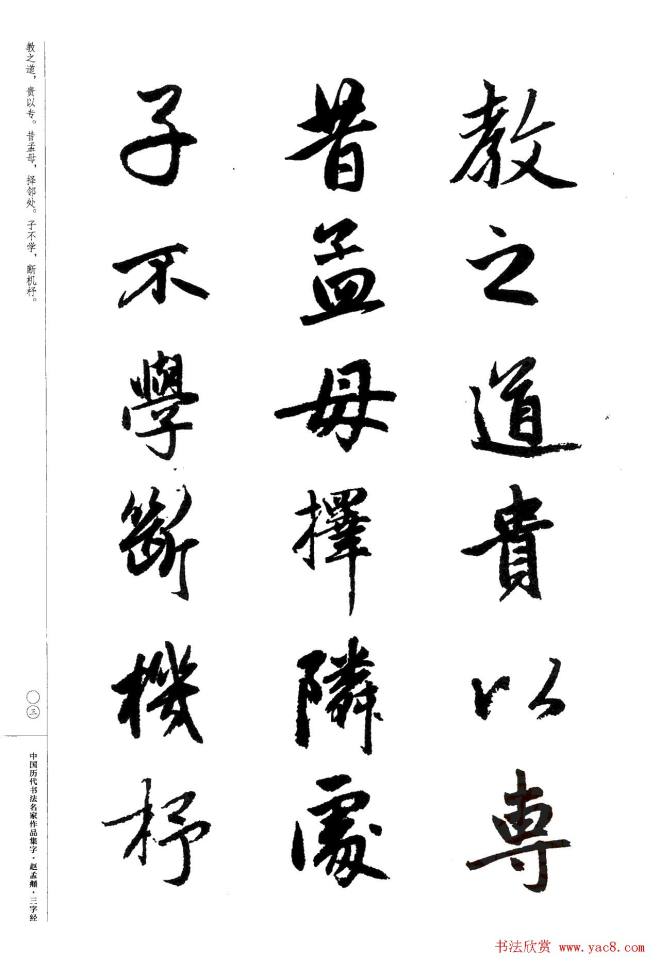 教之道貴以専
昔孟母擇隣處
子不學斷機杼
教之道，贵以专。昔孟母，择邻处。子不学，断机杼。
〇三
中国历代书法名家作品集字·赵孟頫·三字经
书法欣赏 www.yac8.com